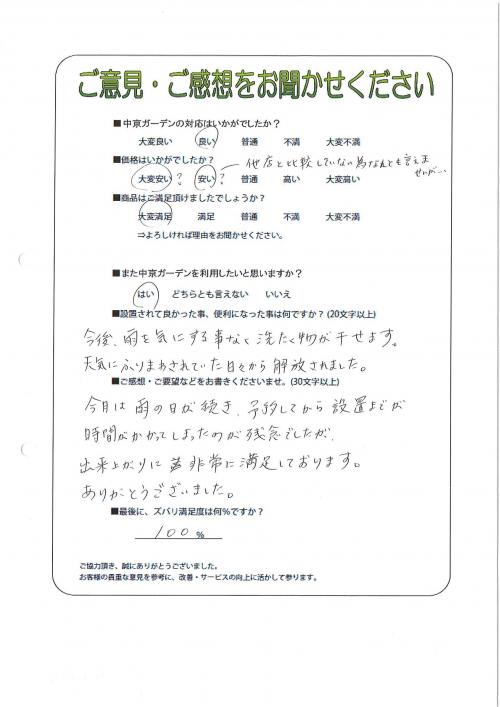 ご意見・ご感想をお聞かせください
■中京ガーデンの対応はいかがでしたか？
大変良い 良い 普通 不満 大変不満
■価格はいかがでしたか？ 他店と比較していない為なんとも言えま
せんが…
大変安い ? 安い ? 普通 高い 大変高い
■商品はご満足頂けましたでしょうか？
大変満足 満足 普通 不満 大変不満
⇒よろしければ理由をお聞かせください。
■また中京ガーデンを利用したいと思いますか？
はい どちらとも言えない いいえ
■設置されて良かった事、便利になった事は何ですか？(20文字以上)
今後、雨を気にする事なく洗たく物が干せます。
天気にふりまわされていた日々から解放されました。
■ご感想・ご要望などをお書きくださいませ。(30文字以上)
今月は雨の日が続き、予約してから設置までが
時間がかかってしまったのが残念でしたが、
出来上がりに非常に満足しております。
ありがとうございました。
■最後に、ズバリ満足度は何％ですか？
100 %
ご協力頂き、誠にありがとうございました。
お客様の貴重な意見を参考に、改善・サービスの向上に活かして参ります。